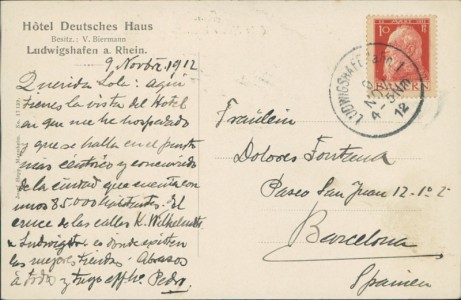 Hôtel Deutsches Haus
Besitz.: V. Biermann
Ludwigshafen a. Rhein.
9 Novbre 1912
Querida Lola: Aqui
tienes la vista del Hotel
en que me he hospedado
que se halla en el punto
mas céntrico y conocido
de la ciudad que cuenta con
unos 85.000 habitantes. El
cruce de las calles K. Wilhelmstr.
y Ludwigstr. es donde existen
las mejores tiendas. Abrazos
á todos y tuyo affme Pedro.
10 10
BAYERN
LUDWIGSHAFEN
12
Fräulein
Dolores
Paseo San Juan 12-1º 2ª
Barcelona
Spanien